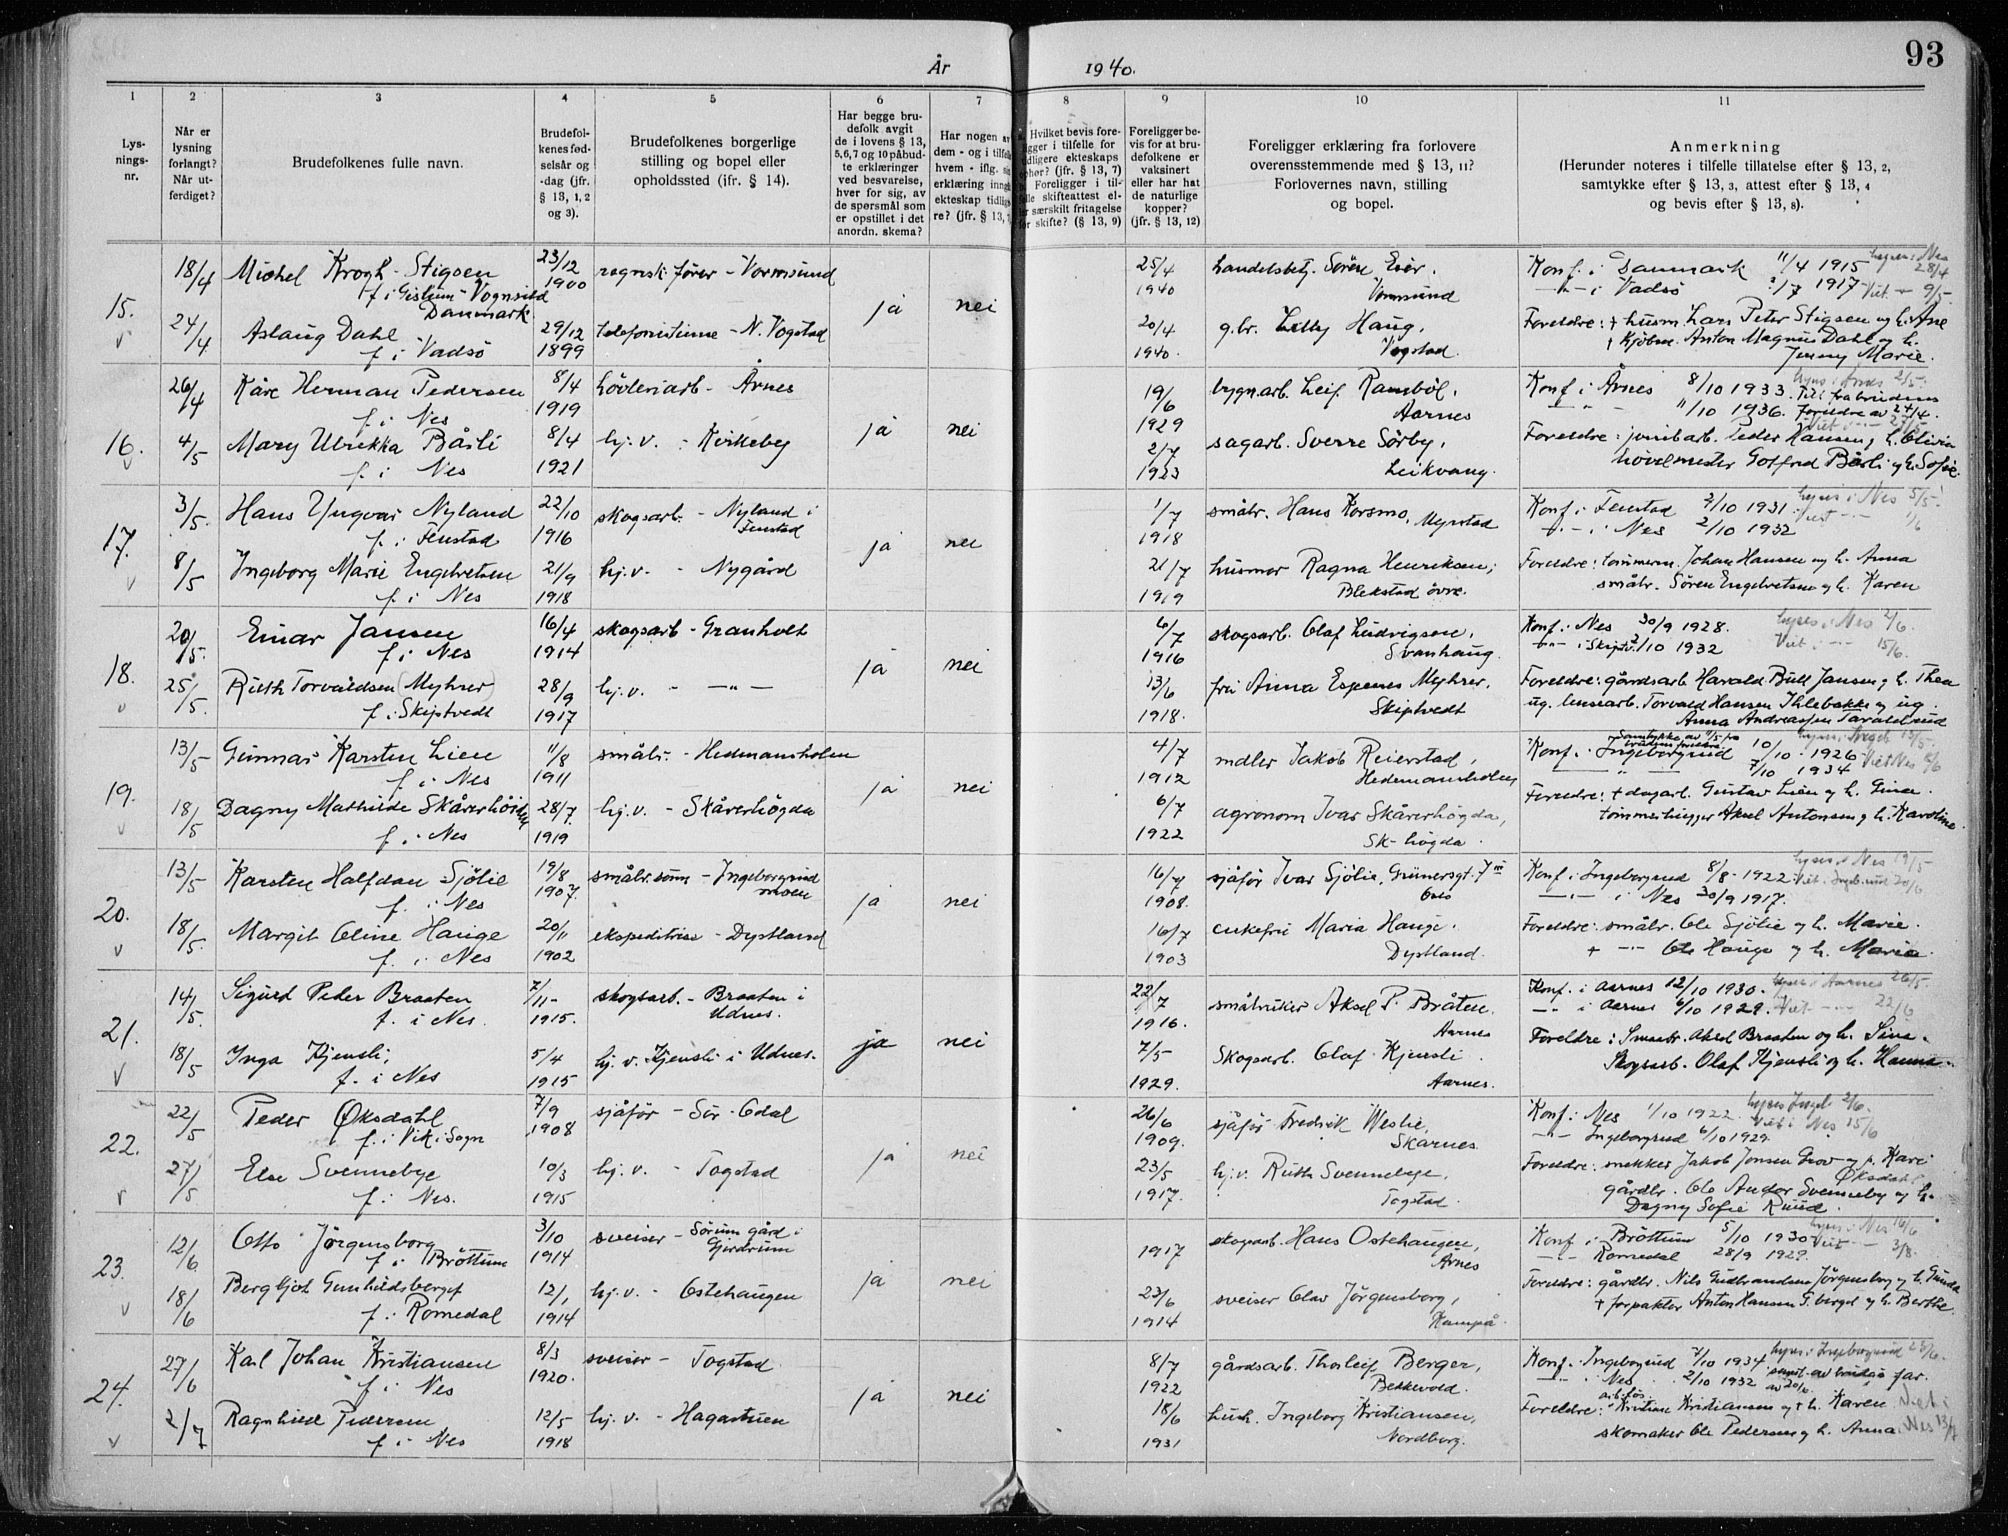 93
År 1940.
1 2 3 4 5 6 7 8 9 10 11
Lys-
nings-
nr.
Når er
lysning
forlangt?
Når ut-
ferdiget?
Brudefolkenes fulle navn.
Brudefol-
kenes fød-
selsår og
-dag (jfr.
§ 13, 1, 2
og 3).
Brudefolkenes borgerlige
stilling og bopel eller
opholdssted (ifr. § 14).
Har begge bru-
defolk avgit
de i lovens § 13,
5,6,7 og 10 påbud-
te erklæringer
ved besvarelse,
hver for sig, av
de spørsmål som
er opstillet i det
anordn. skema?
Har nogen av
dem - og i tilfelle
hvem - iflg. sin
erklæring inngått
ekteskap tidlige-
re? (jfr. § 13,
Hvilket bevis fore-
ligger i tilfelle for
tidligere ekteskaps
ophør? (jfr. § 13, 7)
Foreligger i til-
felle skifteattest el-
ler særskilt fritagelse
for skifte? (§ 13, 9)
Foreligger be-
vis for at bru-
defolkene er
vaksinert
eller har hat
de naturlige
kopper?
(jfr. § 13, 12)
Foreligger erklæring fra forlovere
overensstemmende med § 13, 11?
Forlovernes navn, stilling
og bopel.
Anmerkning
(Herunder noteres i tilfelle tillatelse efter § 13, 2,
samtykke efter § 13, 3, attest efter § 13, 4
og bevis efter § 13, 8).
15.
18/4 Michel Krogh-Stigsen 23/12 1900 regnsk. fører - Vormsund
f. i Gislum - Vognsild
Danmark
ja nei
25/4 1940 handelsbetj. Sören Eier.
Vormsund
Konf. i Danmark 11/4 1915 lyses i Nes 28/4
-"- i Vadsö 2/7 1917 Viet 9/5.
24/4 Aslaug Dahl 29/12 1899 telefonistinne - N. Vogstad
f. i Vadsö
20/4 1940. g.br. Lelly Haug,
Vogstad.
Foreldre: + husm. Lars Peter Stigsen og h. Ane
+ kjöbm. Anton Magnus Dahl og h.
Jenny Marie.
16.
26/4 Kåre Herman Pedersen 8/4 1919 hövleriarb - Årnes
f. i Nes
ja nei
19/6 1929 bygn.arb. Leif Ramböl,
Aarnes
Konf i Årnes 8/10 1933. lyses i Årnes 2/5.
11/10 1936. Till. fra brudens
foreldre av 24/4.
4/5 Mary Ulrikka Bårli 8/4 1921 hj. v. - Kirkeby
f. i Nes
2/7 1923 sagarb. Sverre Sörby,
Leikvang.
Foreldre: jernb.arb. Peder Hansen og h. Olivia
hövelmester Gotfred Bårli og h. Sofie.
17.
3/5. Hans Yngvar Nyland 22/10 1916 skogsarb. - Nyland i
Fenstad
f. i Fenstad
ja nei
1/7 1918 småbr. Hans Korsmo, Myrstad
Konf. i Fenstad 2/10 1931. lyses i Nes 5/5.
-"- i Nes 2/10 1932 Viet 1/6
8/5 Ingeborg Marie Engebretsen 21/9 1918 hj.v. - Nygård
f. i Nes
21/7 1919 husmor Ragna Henriksen,
Blekstad övre.
Foreldre: tömmerm. Johan Hansen og h. Anna
småbr. Sören Engebretsen og h. Karen
18.
20/5. Einar Jansen 16/4 1914 skogsarb - Granholt
f. i Nes
ja nei
6/7 1916 skogsarb. Olaf Ludvigsen,
Svanhaug.
Konf. i Nes 30/9 1928. lyses i Nes 2/6.
-"- i Skiptv. 2/10 1932 Viet i -"- 15/6.
25/5. Ruth Torvaldsen (Myhrer) 28/9 1917 hj. v. - -"-
f. i Skiptvedt
13/6 1918. fru Anna Espenes Myhrer,
Skiptvedt
Foreldre: gårdsarb Harald Bull Jansen og h. Thea
ug. linsearb. Torvald Hansen Ihlebekke og ug.
Anna Andreassen Taraldrud
19.
13/5 Gunnar Karsten Lien 11/8 1911 småbr. - Hedemansholen
f. i Nes
ja nei
4/7 1912 mdler Jakob Reierstad,
Hedemansholen
Samtykke av 9/5 fra
brudens foreldre
Konf. i Ingeborgrud 10/10 1926 lyses i Ingeb. 13/5.
-"- 7/10 1934 Viet Nes
18/5 Dagny Mathilde Skårerhöiden 28/7 1919 hj. v. - Skårerhögda
f. i Nes
6/7 1922 agronom Ivar Skårerhögda,
Sk-högda.
Foreldre: + dagarb. Gustav Lien og h. Gina
tömmerhugger Aksel Antonsen og h. Karoline.
20.
13/5 Karsten Halfdan Sjölie 19/8 1907. småbr. sönn - Ingeborgrud
moen
f. i Nes
ja nei
16/7 1908. sjåfør Ivar Sjölie, Grünersgt. 7 III
Oslo
Konf. i Ingeborgrud 8/8 - 1922. lyses i Nes 19/5
-"- i Nes 30/9 1917. Viet i Ingeb.rud 20/6
18/5. Margit Oline Hauge 20/11 1902 ekspeditrise - Dystland
f. i Nes
16/7 1903 enkefru Maria Hauge,
Dystland.
Foreldre: småbr. Ole Sjölie og h. Marie.
+ -"- Ole Hauge og h. Maria.
21.
14/5. Sigurd Peder Braaten 7/11- 1915. skogsarb. - Braaten i
Udnes.
f. i Nes.
ja nei
22/7 1916. småbruker Aksel P. Bråten.
Aarnes
Konf. i Aarnes 12/10 1930. lyses i Aarnes 26/5.
-"- i Aarnes 6/10 1929. Viet -"- 22/6
18/5 Inga Kjensli, 5/4 1915 hj. v. Kjensli i Udnes.
f. i Nes
7/5 1929. Skogsarb. Olaf Kjensli.
Aarnes.
Foreldre: Smaabr. Aksel Braaten og h. Sina.
Skogsarb. Olaf Kjensli og h. Hanna.
22.
22/5 Peder Øksdahl 7/9 1908 sjåför - Sör-Odal
f. i Vik i Sogn
ja nei
26/6 1909. sjåför Fredrik Weslie,
Skarnes
Konf. i Nes 1/10 1922. lyses Ingeb. 2/6.
-"- Ingeborgrud 6/10 1929. Viet i Nes 15/6
27/5 Else Svennebye 10/3 1915 hj. v. - Togstad
f. i Nes.
23/5 1917. hj.v. Ruth Svennebye,
Togstad.
Foreldre: snekker Jakob Jonsen Grov og p. Kari
Øksdahl
gårdbr. Ole Andor Svenneby og h.
Dagny Sofie Ruud.
23.
12/6 Otto Jörgensborg 3/10 1914 sveiser - Sörum gård i
Gjerdrum
f. i Bröttum
ja nei
1917 skogsarb. Hans Ostehaugen,
Årnes
Konf i Bröttum 5/10 1930 lyses i Nes 16/6
-"- Romedal 28/9 1929. Viet -"- 3/8.
18/6 Bergljot Gunhildsberget 12/1 1914 hj. v. - Ostehaugen
f. i Romedal
23/6 1914 sveiser Olav Jörgensborg,
Kampå.
Foreldre: gårdbr. Nils Gudbrandsen Jörgensborg og h. Gunda
+ forpakter Anton Hansen G. berget og h. Berthe
24.
27/6 Karl Johan Kristiansen 8/3 1920. sveiser - Togstad
f. i Nes
ja nei
8/7 1922 gårdsarb. Thorleif Berger,
Bekkevold.
Konf. i Ingeborgrud 7/10 1934 lyses i Ingeborgrud 23/6.
-"- i Nes 2/10 1932 samt. av brudgs far.
av 20/6
2/7 Ragnhild Pedersen 12/5 1918 hj. v. - Hagastuen
f. i Nes
18/6 1931 hush. Ingeborg Kristiansen,
Nordberg.
Foreldre: arb.for. Kristian Kristiansen og + h. Karen Viet i
skomaker Ole Pedersen og h. Anna. Nes 13/7